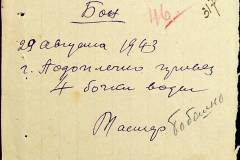 Бон
116
317
29 августа 1943
г. Подоплечко привез
4 бочки воды
Мастер Бобошко